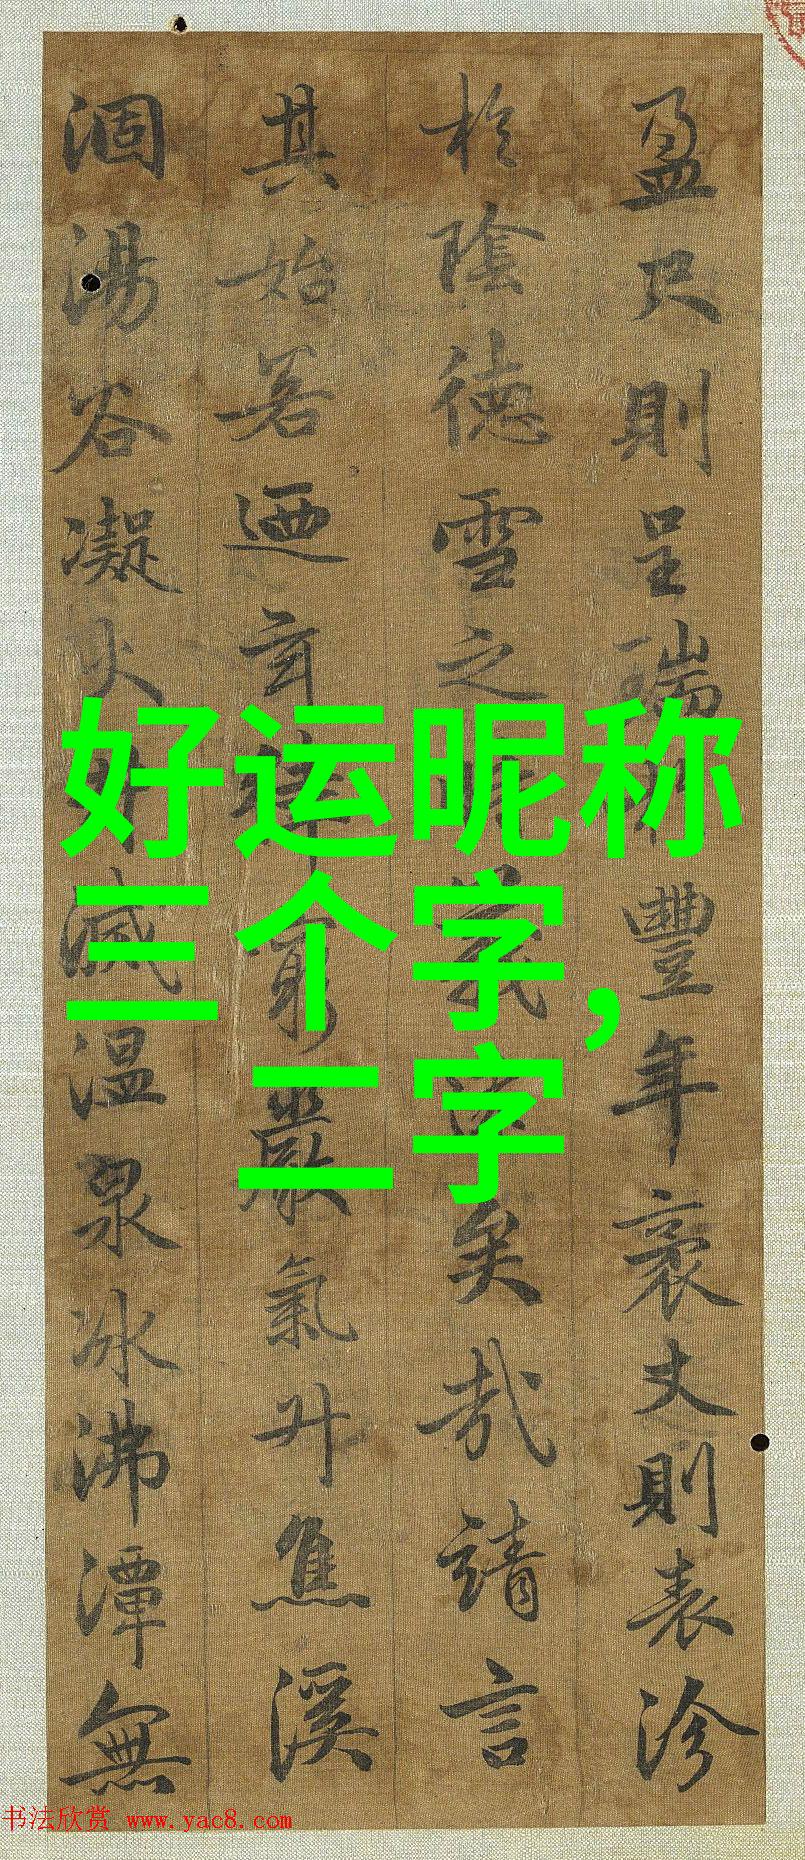 盈尺則呈瑞於豐年袤丈則表沴
於陰德雪之義矣哉請言
其始若迺玄律窮嚴氣升焦溪
涸湯谷凝火井滅温泉冰沸潭無
好运昵称
三个字,
二字
书法欣赏 www.yac8.com